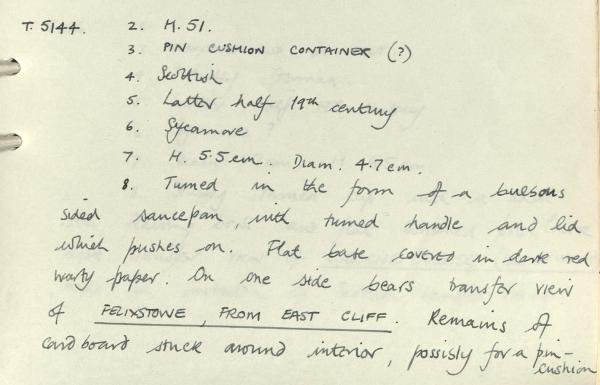 T. 5144. 2. M. 51.
3. PIN CUSHION CONTAINER (?)
4. Scottish
5. Latter half 19th century
6. Sycamore
7. H. 5.5 cm. Diam. 4.7 cm.
8. Turned in the form of a bulbous
sided saucepan, with turned handle and lid
which pushes on. Flat base covered in dark red
warty paper. On one side bears transfer view
of FELIXSTOWE, FROM EAST CLIFF. Remains of
cardboard stuck around interior, possibly for a pin-
cushion